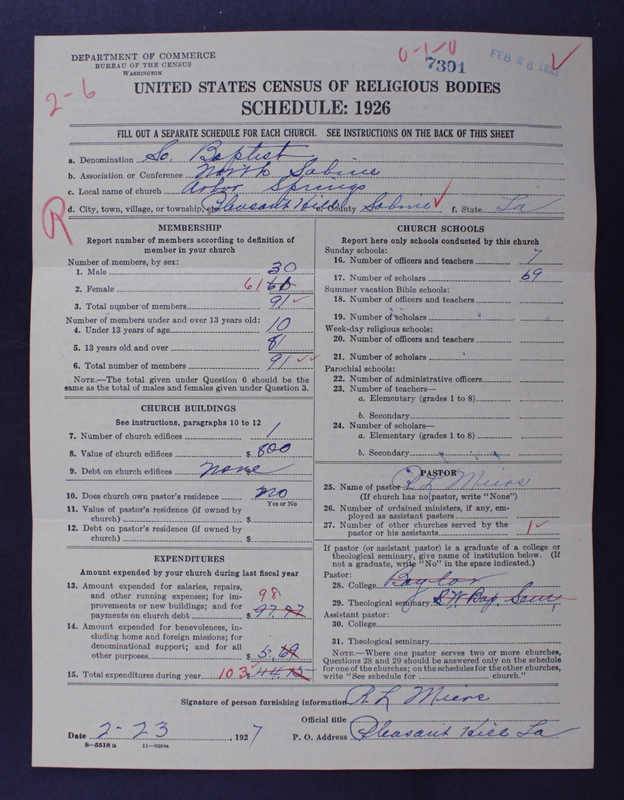 DEPARTMENT OF COMMERCE
BUREAU OF THE CENSUS
WASHINGTON
0-1-0
7391
FEB 26 1927
2-6
UNITED STATES CENSUS OF RELIGIOUS BODIES
SCHEDULE: 1926
FILL OUT A SEPARATE SCHEDULE FOR EACH CHURCH. SEE INSTRUCTIONS ON THE BACK OF THIS SHEET
a. Denomination So. Baptist
b. Association or Conference North Sabine
c. Local name of church Arbor Springs
d. City, town, village, or township, etc. Pleasant Hill e. County Sabine f. State La
R
MEMBERSHIP
Report number of members according to definition of
member in your church
Number of members, by sex:
1. Male 30
2. Female 61
3. Total number of members 91
Number of members under and over 13 years old:
4. Under 13 years of age 10
5. 13 years old and over 81
6. Total number of members 91
NOTE.—The total given under Question 6 should be the
same as the total of males and females given under Question 3.
CHURCH BUILDINGS
See instructions, paragraphs 10 to 12
7. Number of church edifices 1
8. Value of church edifices $ 800
9. Debt on church edifices none $
10. Does church own pastor's residence no
Yes or No
11. Value of pastor's residence (if owned by
church) $
12. Debt on pastor's residence (if owned by
church) $
EXPENDITURES
Amount expended by your church during last fiscal year
13. Amount expended for salaries, repairs,
and other running expenses; for im-
provements or new buildings; and for
payments on church debt $ 98
14. Amount expended for benevolences, in-
cluding home and foreign missions; for
denominational support; and for all
other purposes $ 5.69
15. Total expenditures during year 103 $
CHURCH SCHOOLS
Report here only schools conducted by this church
Sunday schools:
16. Number of officers and teachers 7
17. Number of scholars 69
Summer vacation Bible schools:
18. Number of officers and teachers
19. Number of scholars
Week-day religious schools:
20. Number of officers and teachers
21. Number of scholars
Parochial schools:
22. Number of administrative officers
23. Number of teachers—
a. Elementary (grades 1 to 8)
b. Secondary
24. Number of scholars—
a. Elementary (grades 1 to 8)
b. Secondary
PASTOR
25. Name of pastor R L Miers
(If church has no pastor, write "None")
26. Number of ordained ministers, if any, em-
ployed as assistant pastors
27. Number of other churches served by the
pastor or his assistants 1
If pastor (or assistant pastor) is a graduate of a college or
theological seminary, give name of institution below. (If
not a graduate, write "No" in the space indicated.)
Pastor:
28. College Baylor
29. Theological seminary S W Bap. Sem
Assistant pastor:
30. College
31. Theological seminary
NOTE.—Where one pastor serves two or more churches,
Questions 28 and 29 should be answered only on the schedule
for one of the churches; on the schedules for the other churches,
write "See schedule for church."
Signature of person furnishing information R L Miers
Official title
Date 2-23, 1927 P. O. Address Pleasant Hill La
8-5518 a 11-9054a